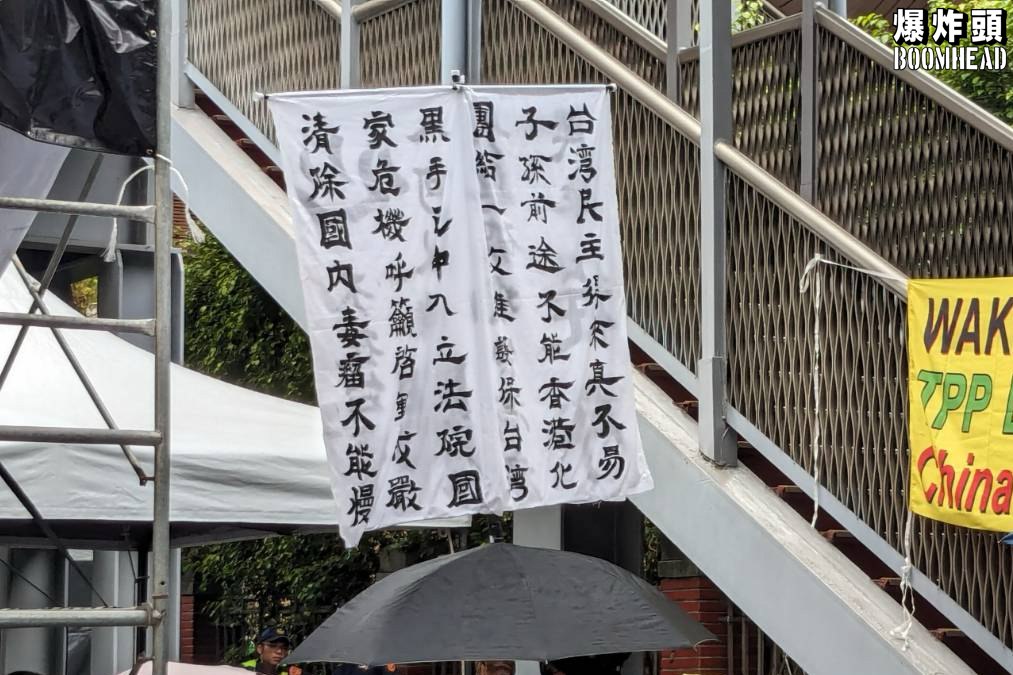 爆炸頭
BOOMHEAD
台湾民主來真不易
子孫前途不能香港化
團結一保台湾
黑手已伸入立法院國
家危機呼籲啓嚴
清除國内毒瘤不能慢
WAK
TPP
China